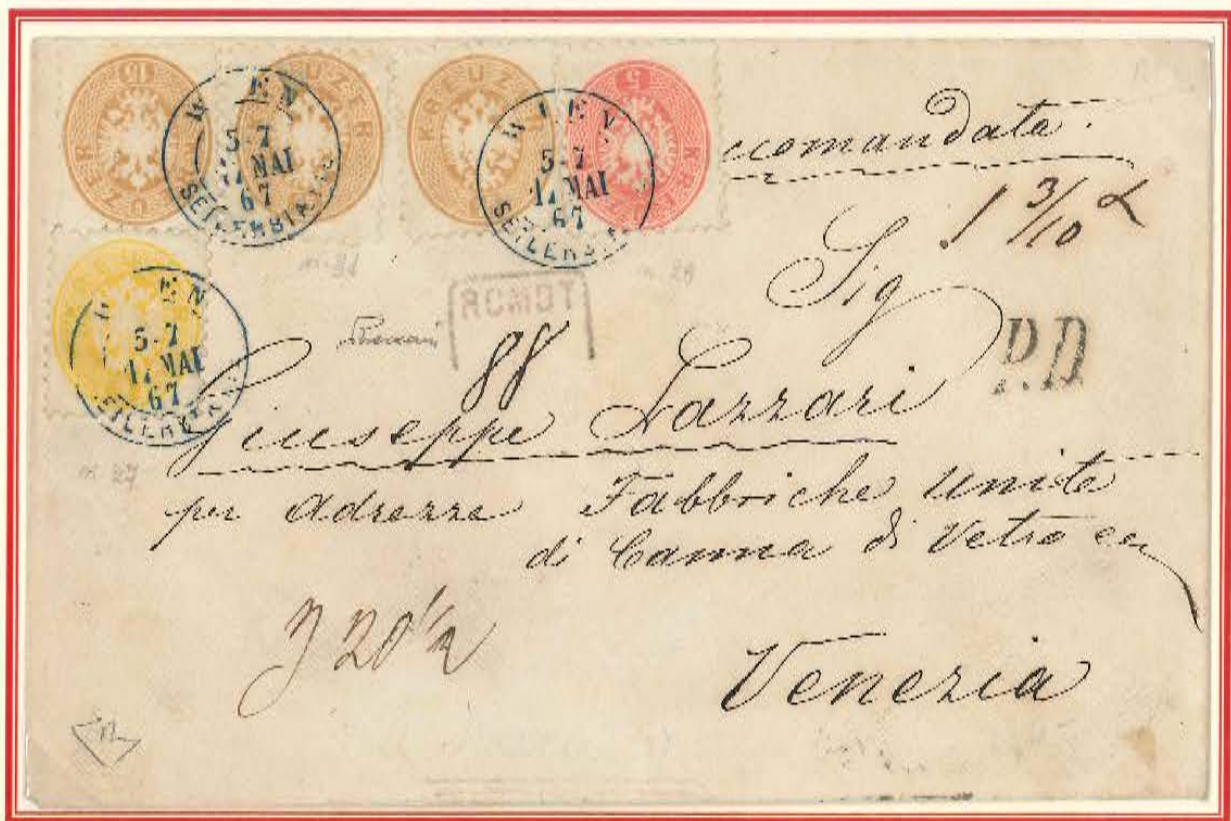 15
5
KREUZER
KREUZER
KREUZER
WIEN
5-7
17 MAI
67
SEILERSTATTE
WIEN
5-7
17 MAI
67
SEILERST
WIEN
5-7
17 MAI
67
SEILERSTA
ccomandata.
1 3/10
n. 28
RCMDT
88
Sig
P.D
Giuseppe Lazzari
n. 27
per Adrezze Fabbriche Unite
di Canna di Vetro en
20 1/2
Venezia